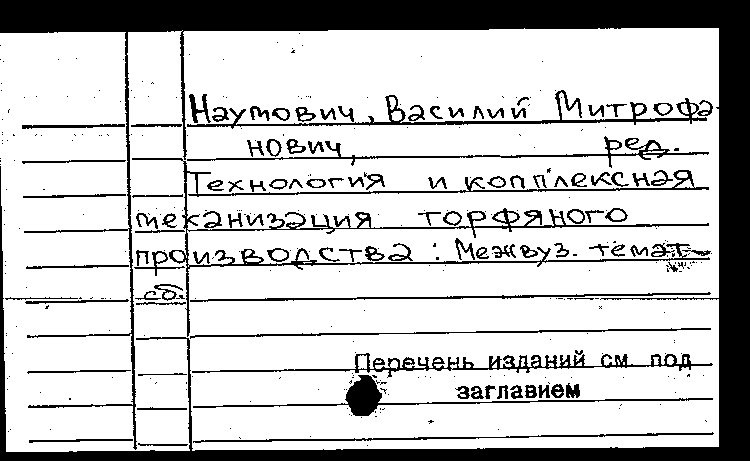 Наумович, Василий Митрофа-
нович, ред.
Технология и комплексная
механизация торфяного
производства : Межвуз. темат.
сб.
Перечень изданий см. под
заглавием